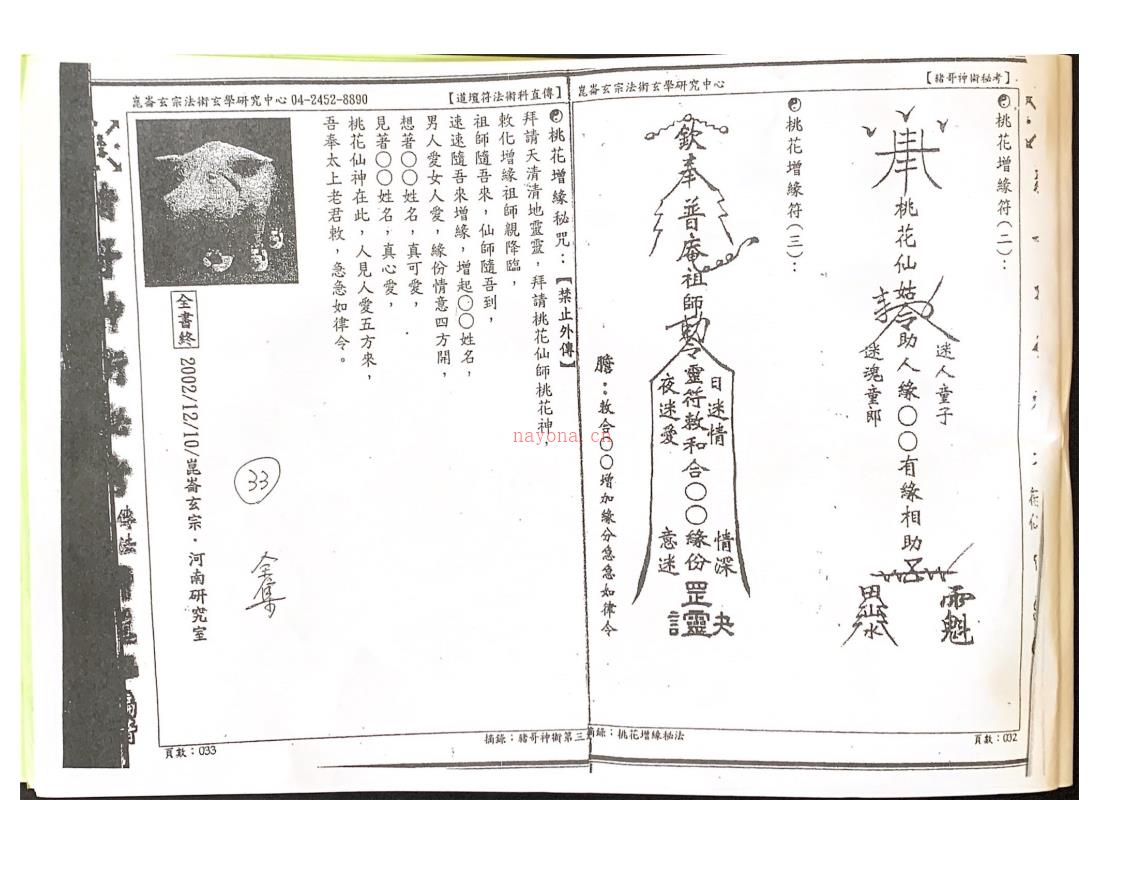 【豬哥神術秘考】
崑崙玄宗法術玄學研究中心
桃花增緣符(二):
桃花仙姑令助人緣〇〇有緣相助
迷人童子
迷魂童郎
魁
桃花增緣符(三):
欽奉普庵祖師勅令靈符敕和合〇〇緣份罡靈
日迷情
夜迷愛
情深
意迷
膽:敕合〇〇增加緣分急急如律令
摘錄:桃花增緣秘法
頁數:032
崑崙玄宗法術玄學研究中心 04-2452-8890
【道壇符法術科直傳】
桃花增緣秘咒:【禁止外傳】
拜請天清清地靈靈,拜請桃花仙師桃花神,
敕化增緣祖師親降臨,
祖師隨吾來,仙師隨吾到,
速速隨吾來增緣,增起〇〇姓名,
男人愛女人愛,緣份情意四方開,
想著〇〇姓名,真可愛,
見著〇〇姓名,真心愛,
桃花仙神在此,人見人愛五方來,
吾奉太上老君敕,急急如律令。
全書終 2002/12/10/崑崙玄宗.河南研究室
33
全集
摘錄:豬哥神術第三
頁數:033
傳法
nayona.cn